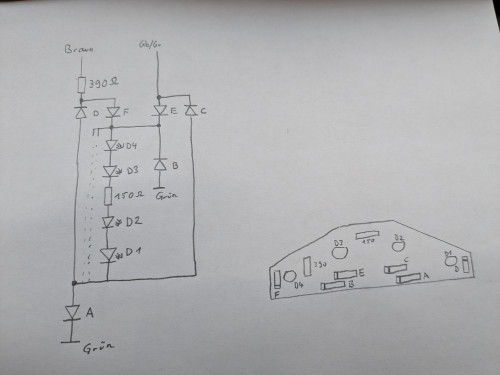 Braun
Gb/Gr
390Ω
D
F
E
C
D4
D3
B
150Ω
Grün
D2
D1
A
Grün
D3
150
D2
390
D1
D
C
E
A
D4
B
F